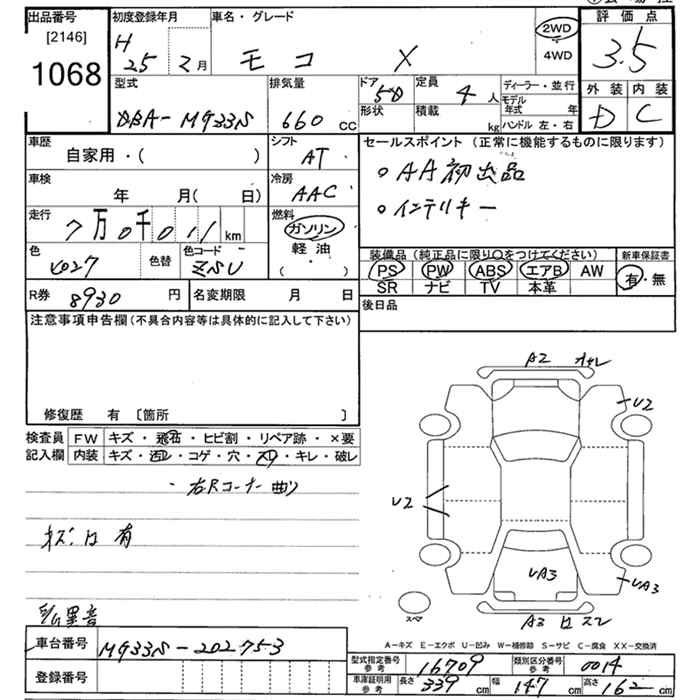 出品番号 初度登録年月 車名・グレード 評価点
[2146] H 2WD
1068 25 2月 モコ X 4WD 3.5
型式 排気量 ドア 5D 定員 4人 ディーラー・並行 外装 内装
DBA-MG33S 660 cc 形状 積載 kg モデル年式 年 D C
ハンドル 左・右
車歴 シフト セールスポイント (正常に機能するものに限ります)
自家用・( ) AT ○AA初出品
車検 冷房 ○インテリキー
年 月( 日) AAC
走行 燃料
7万0千011km ガソリン
色 色替 色コード 軽油 装備品(純正品に限り○をつけてください) 新車保証書
ZSU (・) PS PW ABS エアB AW 有・無
SR ナビ TV 本革
R券 8930円 名変期限 月 日 後日品
注意事項申告欄(不具合内容等は具体的に記入して下さい)
修復歴 有 [箇所 ]
A2
U2
検査員 FW キズ・飛石・ヒビ割・リペア跡・×要
記入欄 内装 キズ・汚レ・コゲ・穴・スリ・キレ・破レ
・右Rコーナー曲り
U2
キズ凹有
UA3
UA3
スペア
A3凹スレ
車台番号 MG33S-202753
A-キズ E-エクボ U-凹み W-補修跡 S-サビ C-腐食 XX-交換済
登録番号 型式指定番号参考 16709 類別区分番号参考 0014
車庫証明用参考 長さ 339cm 幅 147cm 高さ 162cm